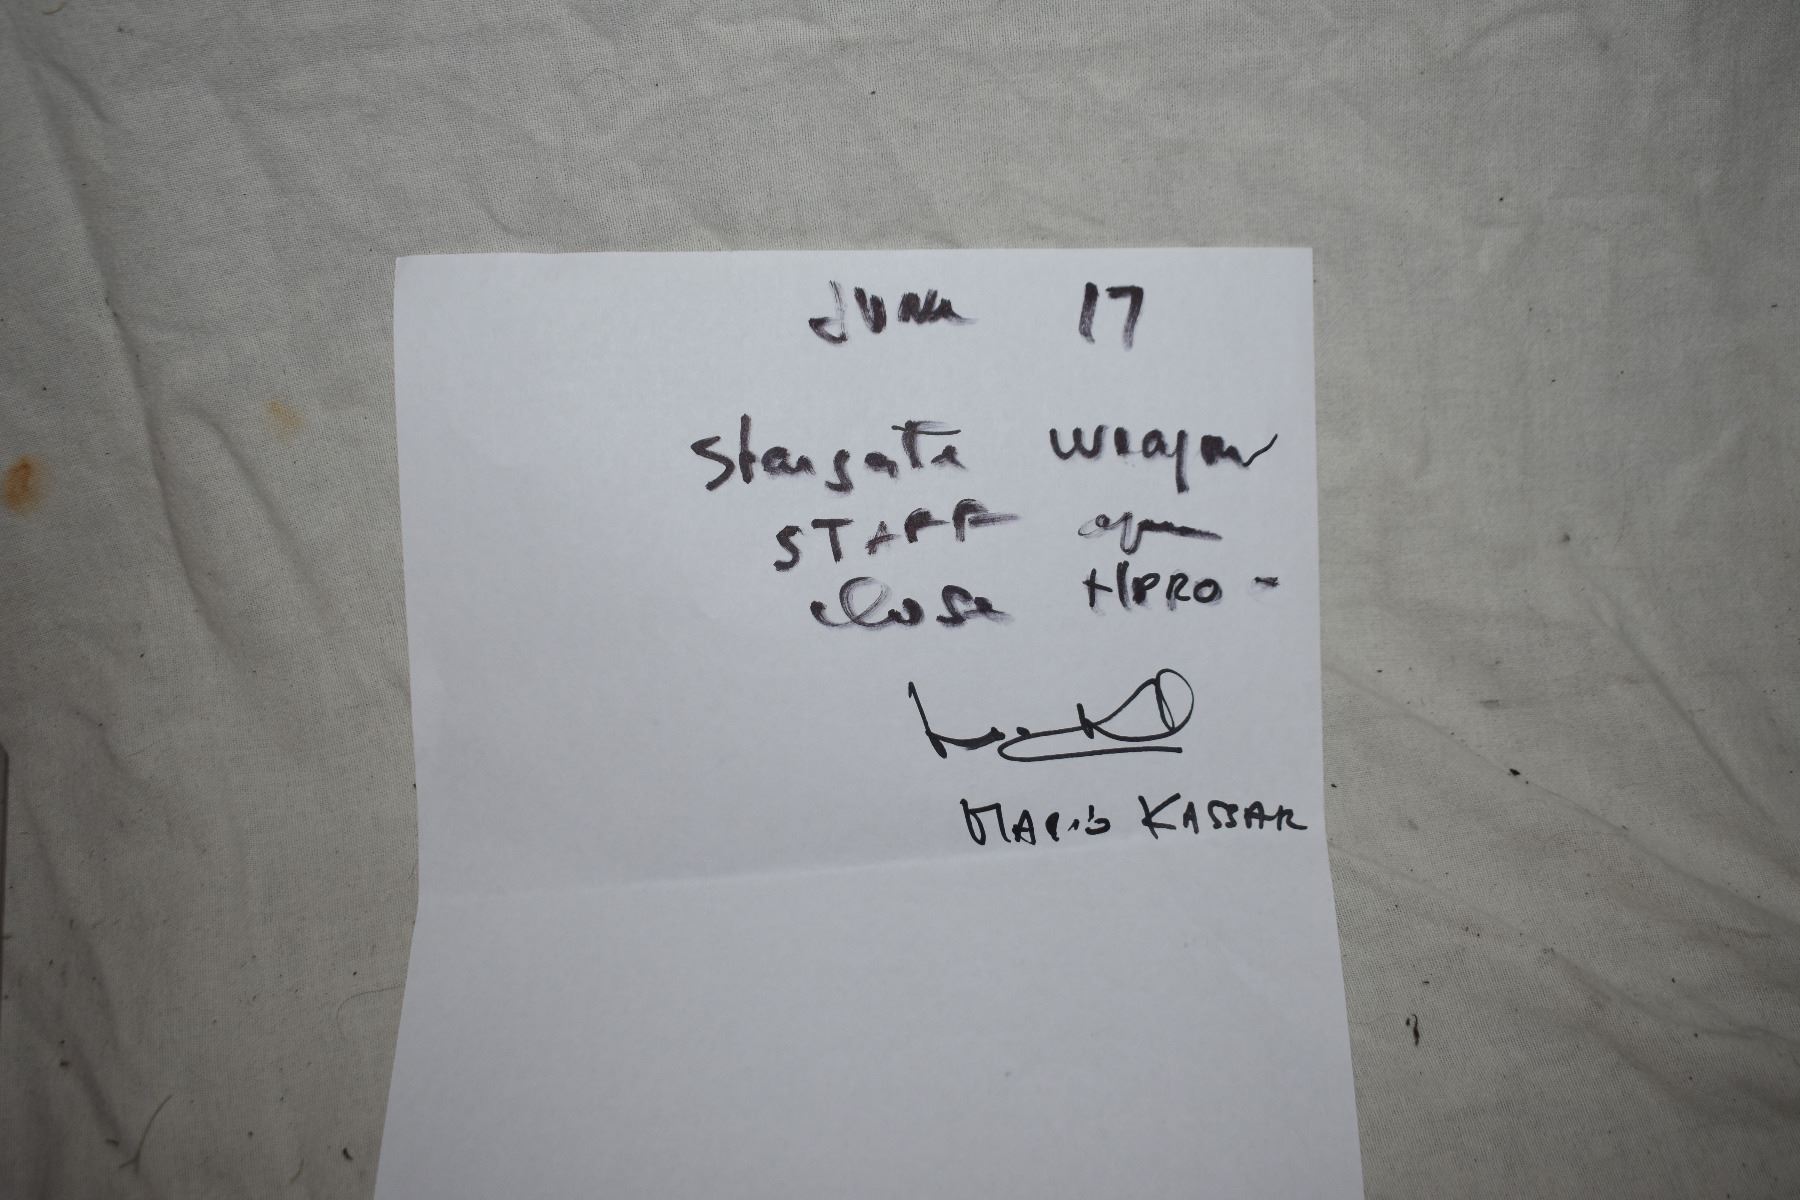 June 17
Stargate weapon
STAFF open
close HERO -
MARIO KASSAR